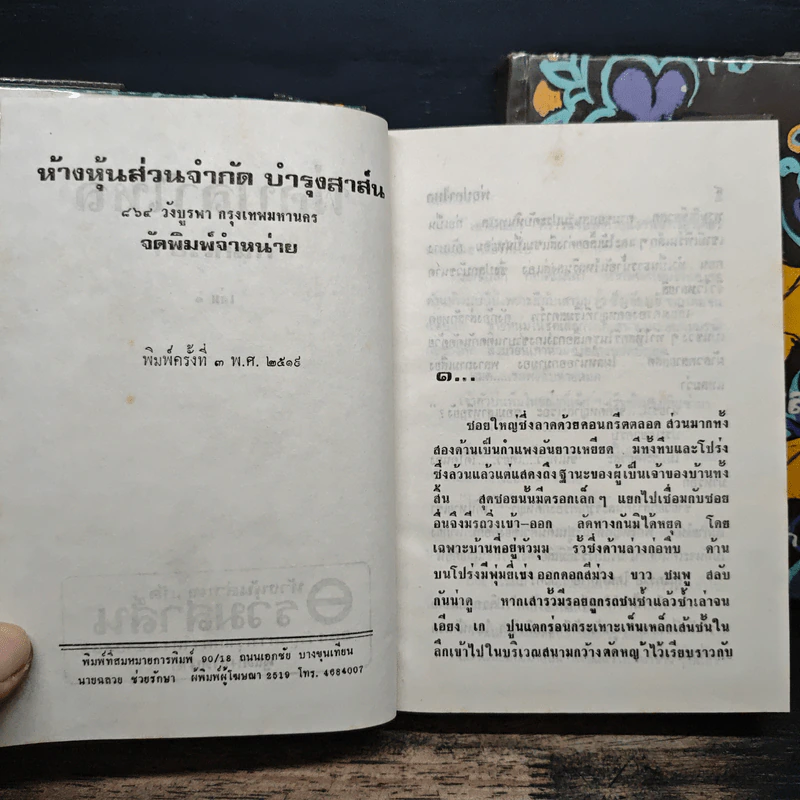 ห้างหุ้นส่วนจำกัด บำรุงสาส์น
๘๖๔ วังบูรพา กรุงเทพมหานคร
จัดพิมพ์จำหน่าย
พิมพ์ครั้งที่ ๓ พ.ศ. ๒๕๑๙
พิมพ์ที่สมหมายการพิมพ์ 90/18 ถนนเอกชัย บางขุนเทียน
นายฉลวย ช่วยรักษา ผู้พิมพ์ผู้โฆษณา 2519 โทร. 4684007
๑...
ซอยใหญ่ซึ่งลาดด้วยคอนกรีตตลอด ส่วนมากทั้ง
สองด้านเป็นกำแพงอันยาวเหยียด มีทั้งทึบและโปร่ง
ซึ่งล้วนแล้วแต่แสดงถึงฐานะของผู้เป็นเจ้าของบ้านทั้ง
สิ้น สุดซอยนั้นมีตรอกเล็กๆ แยกไปเชื่อมกับซอย
อื่นจึงมีรถวิ่งเข้า-ออก ลัดทางกันมิได้หยุด โดย
เฉพาะบ้านที่อยู่หัวมุม รั้วซึ่งด้านล่างก่อทึบ ด้าน
บนโปร่งมีพุ่มยี่เข่ง ออกดอกสีม่วง ขาว ชมพู สลับ
กันน่าดู หากเสารั้วมีรอยถูกรถชนซ้ำแล้วซ้ำเล่าจน
เอียง เก ปูนแตกร่อนกระเทาะเห็นเหล็กเส้นชั้นใน
ลึกเข้าไปในบริเวณสนามกว้างตัดหญ้าไว้เรียบราวกับ